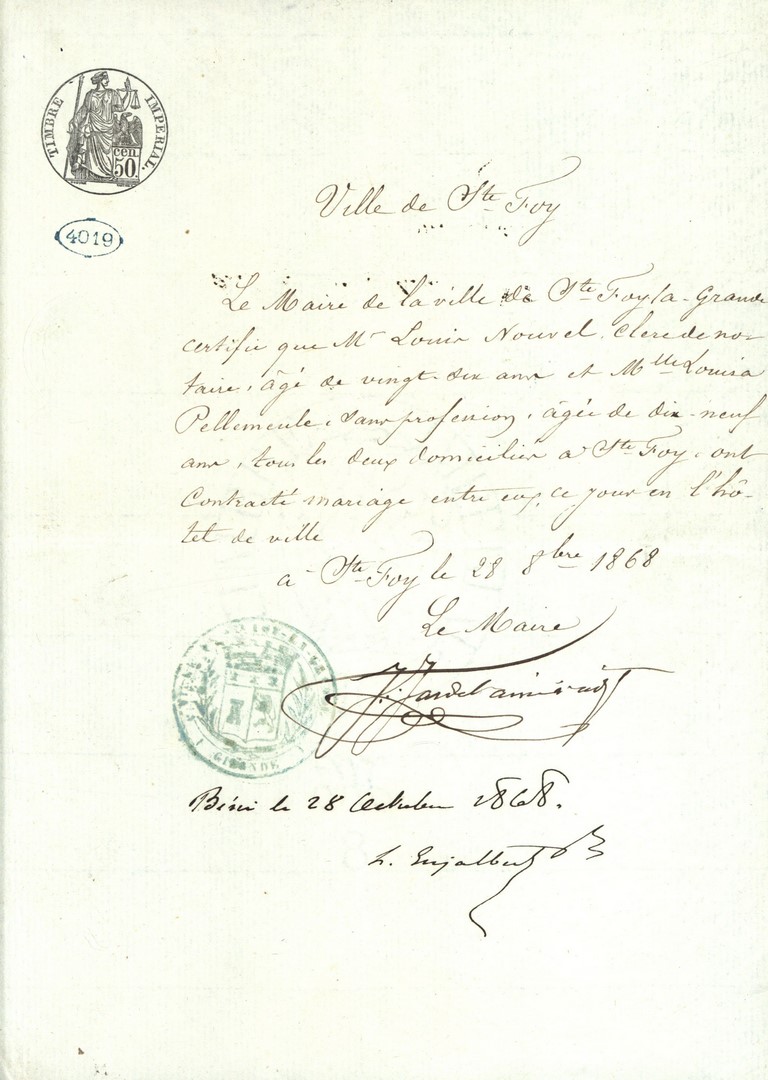 TIMBRE IMPERIAL.
cen
50.
4019
Ville de Ste Foy
Le Maire de la ville de Ste Foy la-Grande
certifie que Mr Louis Nouvel, Clerc de no-
taire, âgé de vingt-dix ans et Mlle Louisa
Pellemeule, sans profession, âgée de dix-neuf
ans, tous les deux domiciliés à Ste Foy, ont
Contracté mariage entre eux, ce jour en l'hô-
tel de ville
à Ste Foy le 28 8bre 1868
Le Maire
GIRONDE
Béni le 28 Octobre 1868.
L. Enjalbert